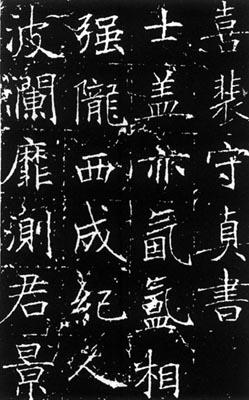 喜裴守貞書
士盖亦氤氳相
强隴西成紀人
波瀾靡測君景